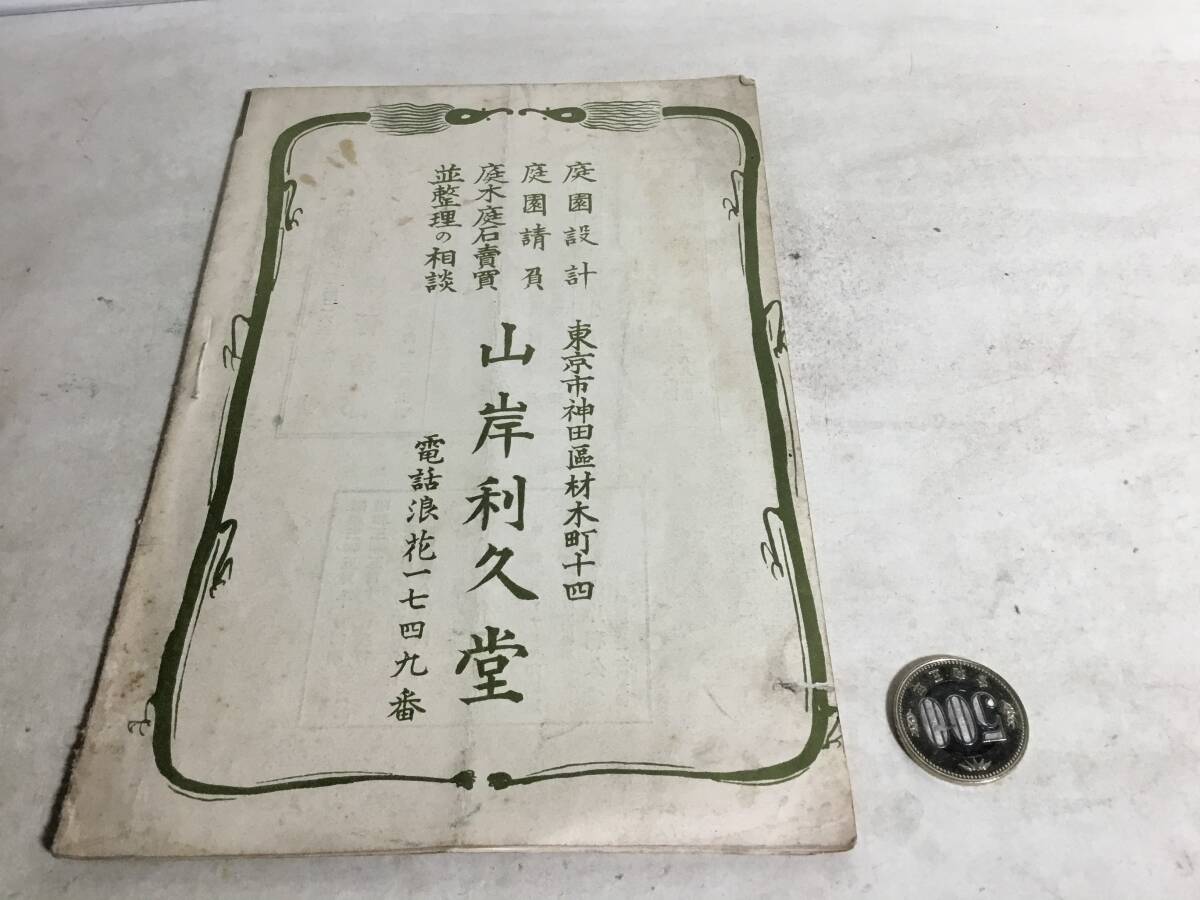 庭園設計
庭園請負
庭木庭石賣買
並整理の相談
東京市神田區材木町十四
山岸利久堂
電話浪花一七四九番
500